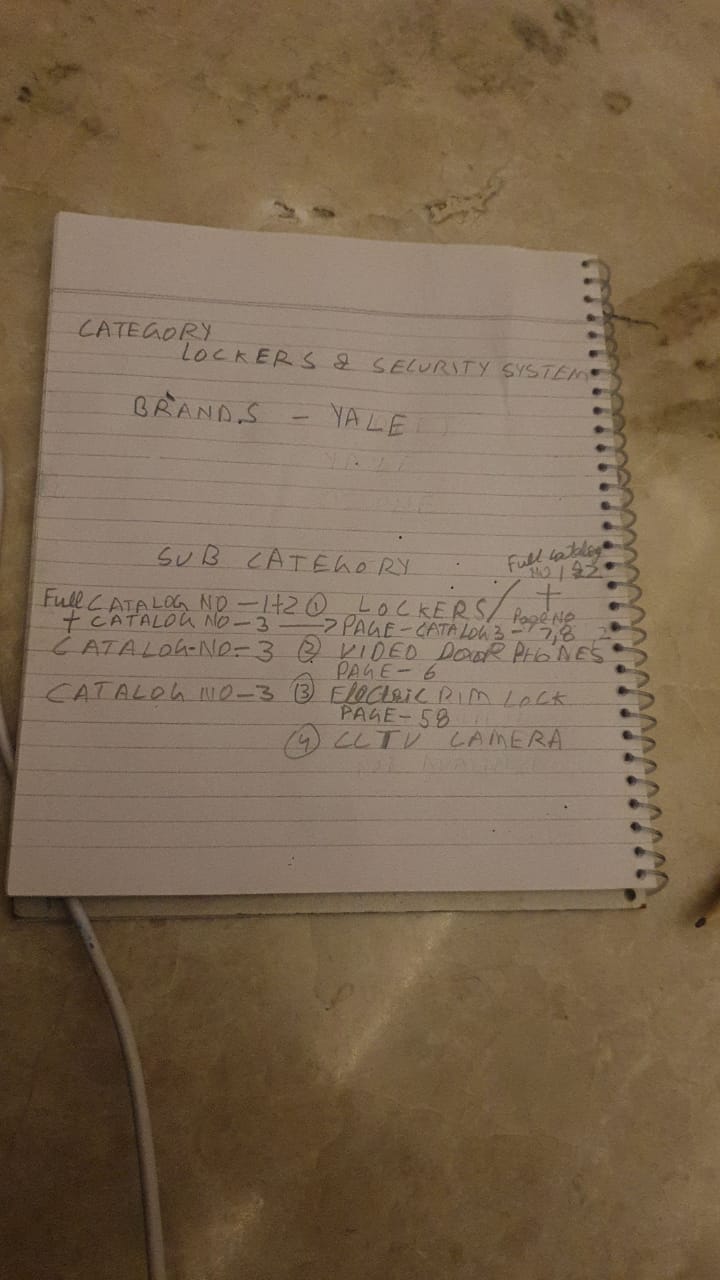 CATEGORY
LOCKERS & SECURITY SYSTEM
BRANDS - YALE
SUB CATEGORY
Full Catalog
NO 1 & 2
+
Full CATALOG NO - 1+2 ① LOCKERS/
Page No
+ CATALOG NO - 3 → PAGE - CATALOG 3 - 7,8
CATALOG-NO- 3 ② VIDEO DOOR PHONES
PAGE - 6
CATALOG NO-3 ③ Electric RIM LOCK
PAGE- 58
④ CCTV CAMERA